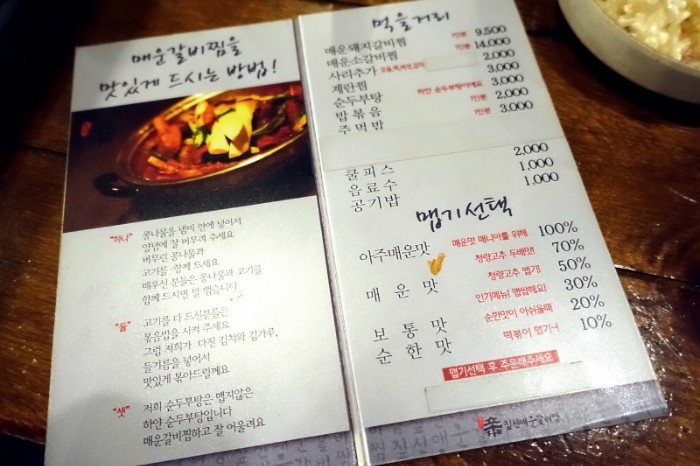 매운갈비찜을
맛있게 드시는 방법!
"하나"
콩나물을 냄비 안에 넣어서
양념에 잘 버무려 주세요
버무린 콩나물과
고기를 함께 드세요
매우신 분들은 콩나물과 고기를
함께 드시면 덜 맵습니다
"둘"
고기를 다 드신분들은
볶음밥을 시켜 주세요
그럼 저희가 다진 김치와 김가루,
들기름을 넣어서
맛있게 볶아드릴께요
"셋"
저희 순두부탕은 맵지않은
하얀 순두부탕입니다
매운갈비찜하고 잘 어울려요
먹을거리
매운돼지갈비찜 1인분 9,500
매운소갈비찜 1인분 14,000
사리추가 2,000
계란찜 3,000
순두부탕 하얀 순두부탕이에요 3,000
밥볶음 1인분 2,000
주먹밥 1인분 3,000
쿨피스 2,000
음료수 1,000
공기밥 1,000
맵기선택
아주매운맛 매운맛 매니아를 위해 100%
청량고추 두배맛 70%
매운맛 청량고추 맵기 50%
인기메뉴! 맵쌉해요! 30%
보통맛 순한맛이 아쉬울때 20%
순한맛 떡볶이 맵기~! 10%
맵기선택 후 주문해주세요